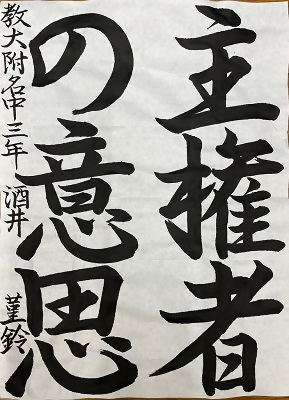 主権者
の意思
教大附名中三年 酒井 菫鈴